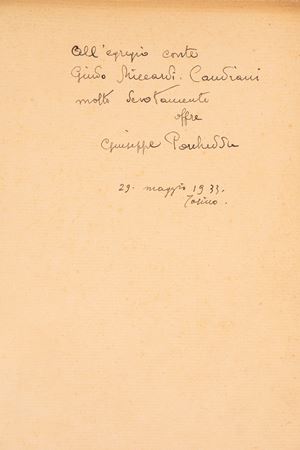 All'egregio conte
Guido Riccardi-Candiani
molto devotamente
offre
Giuseppe Porcheddu
29. maggio 1933.
Torino.